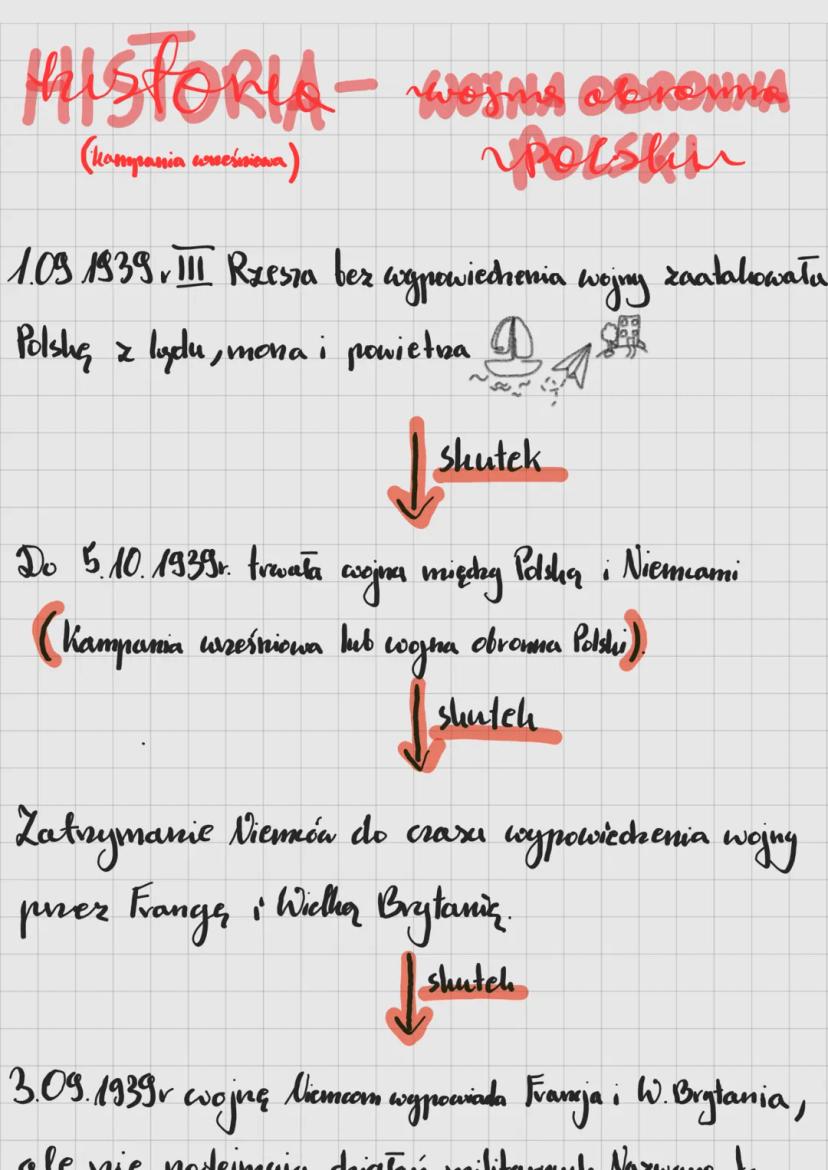 HISTORIA – wojna obronna
(kampania wrześniowa) POLSKI
1.09 1939r III Rzesza bez wypowiedzenia wojny zaatakowała
Polskę z lądu, morza i powietrza
skutek
Do 5.10.1939r. trwała wojna między Polską i Niemcami
(Kampania wrześniowa lub wojna obronna Polski).
skutek
Zatrzymanie Niemców do czasu wypowiedzenia wojny
przez Francję i Wielką Brytanię.
skutek
3.09.1939r wojnę Niemcom wypowiada Francja i W.Brytania,
ale nie podejmują działań militarnych